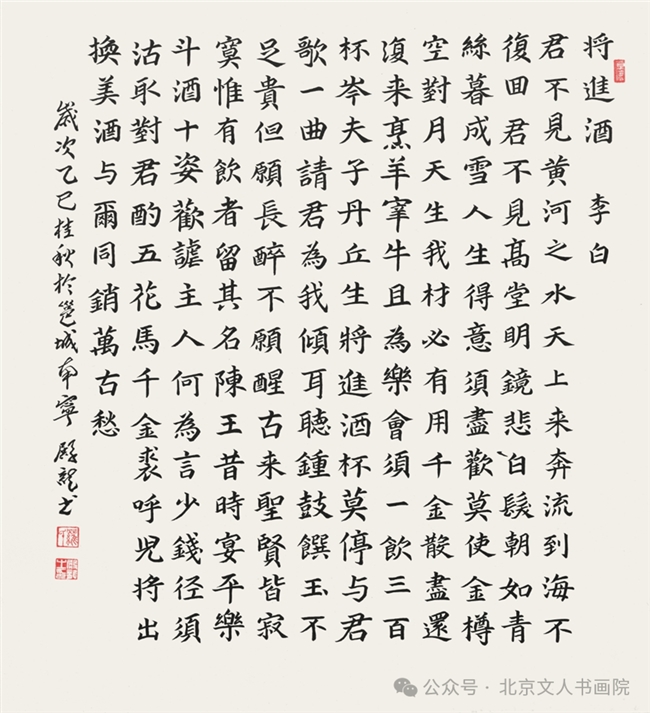 将進酒 李白
君不見黄河之水天上来奔流到海不
復回君不見高堂明鏡悲白髮朝如青
絲暮成雪人生得意須盡歡莫使金樽
空對月天生我材必有用千金散盡還
復来烹羊宰牛且為樂會須一飲三百
杯岑夫子丹丘生將進酒杯莫停与君
歌一曲請君為我傾耳聽鍾鼓饌玉不
足貴但願長醉不願醒古来聖賢皆寂
寞惟有飲者留其名陳王昔時宴平樂
斗酒十姿歡謔主人何為言少錢径須
沽取對君酌五花馬千金裘呼児将出
換美酒与爾同銷萬古愁
歲次乙巳桂秋於邕城南寧 龍书
公众号·北京文人书画院